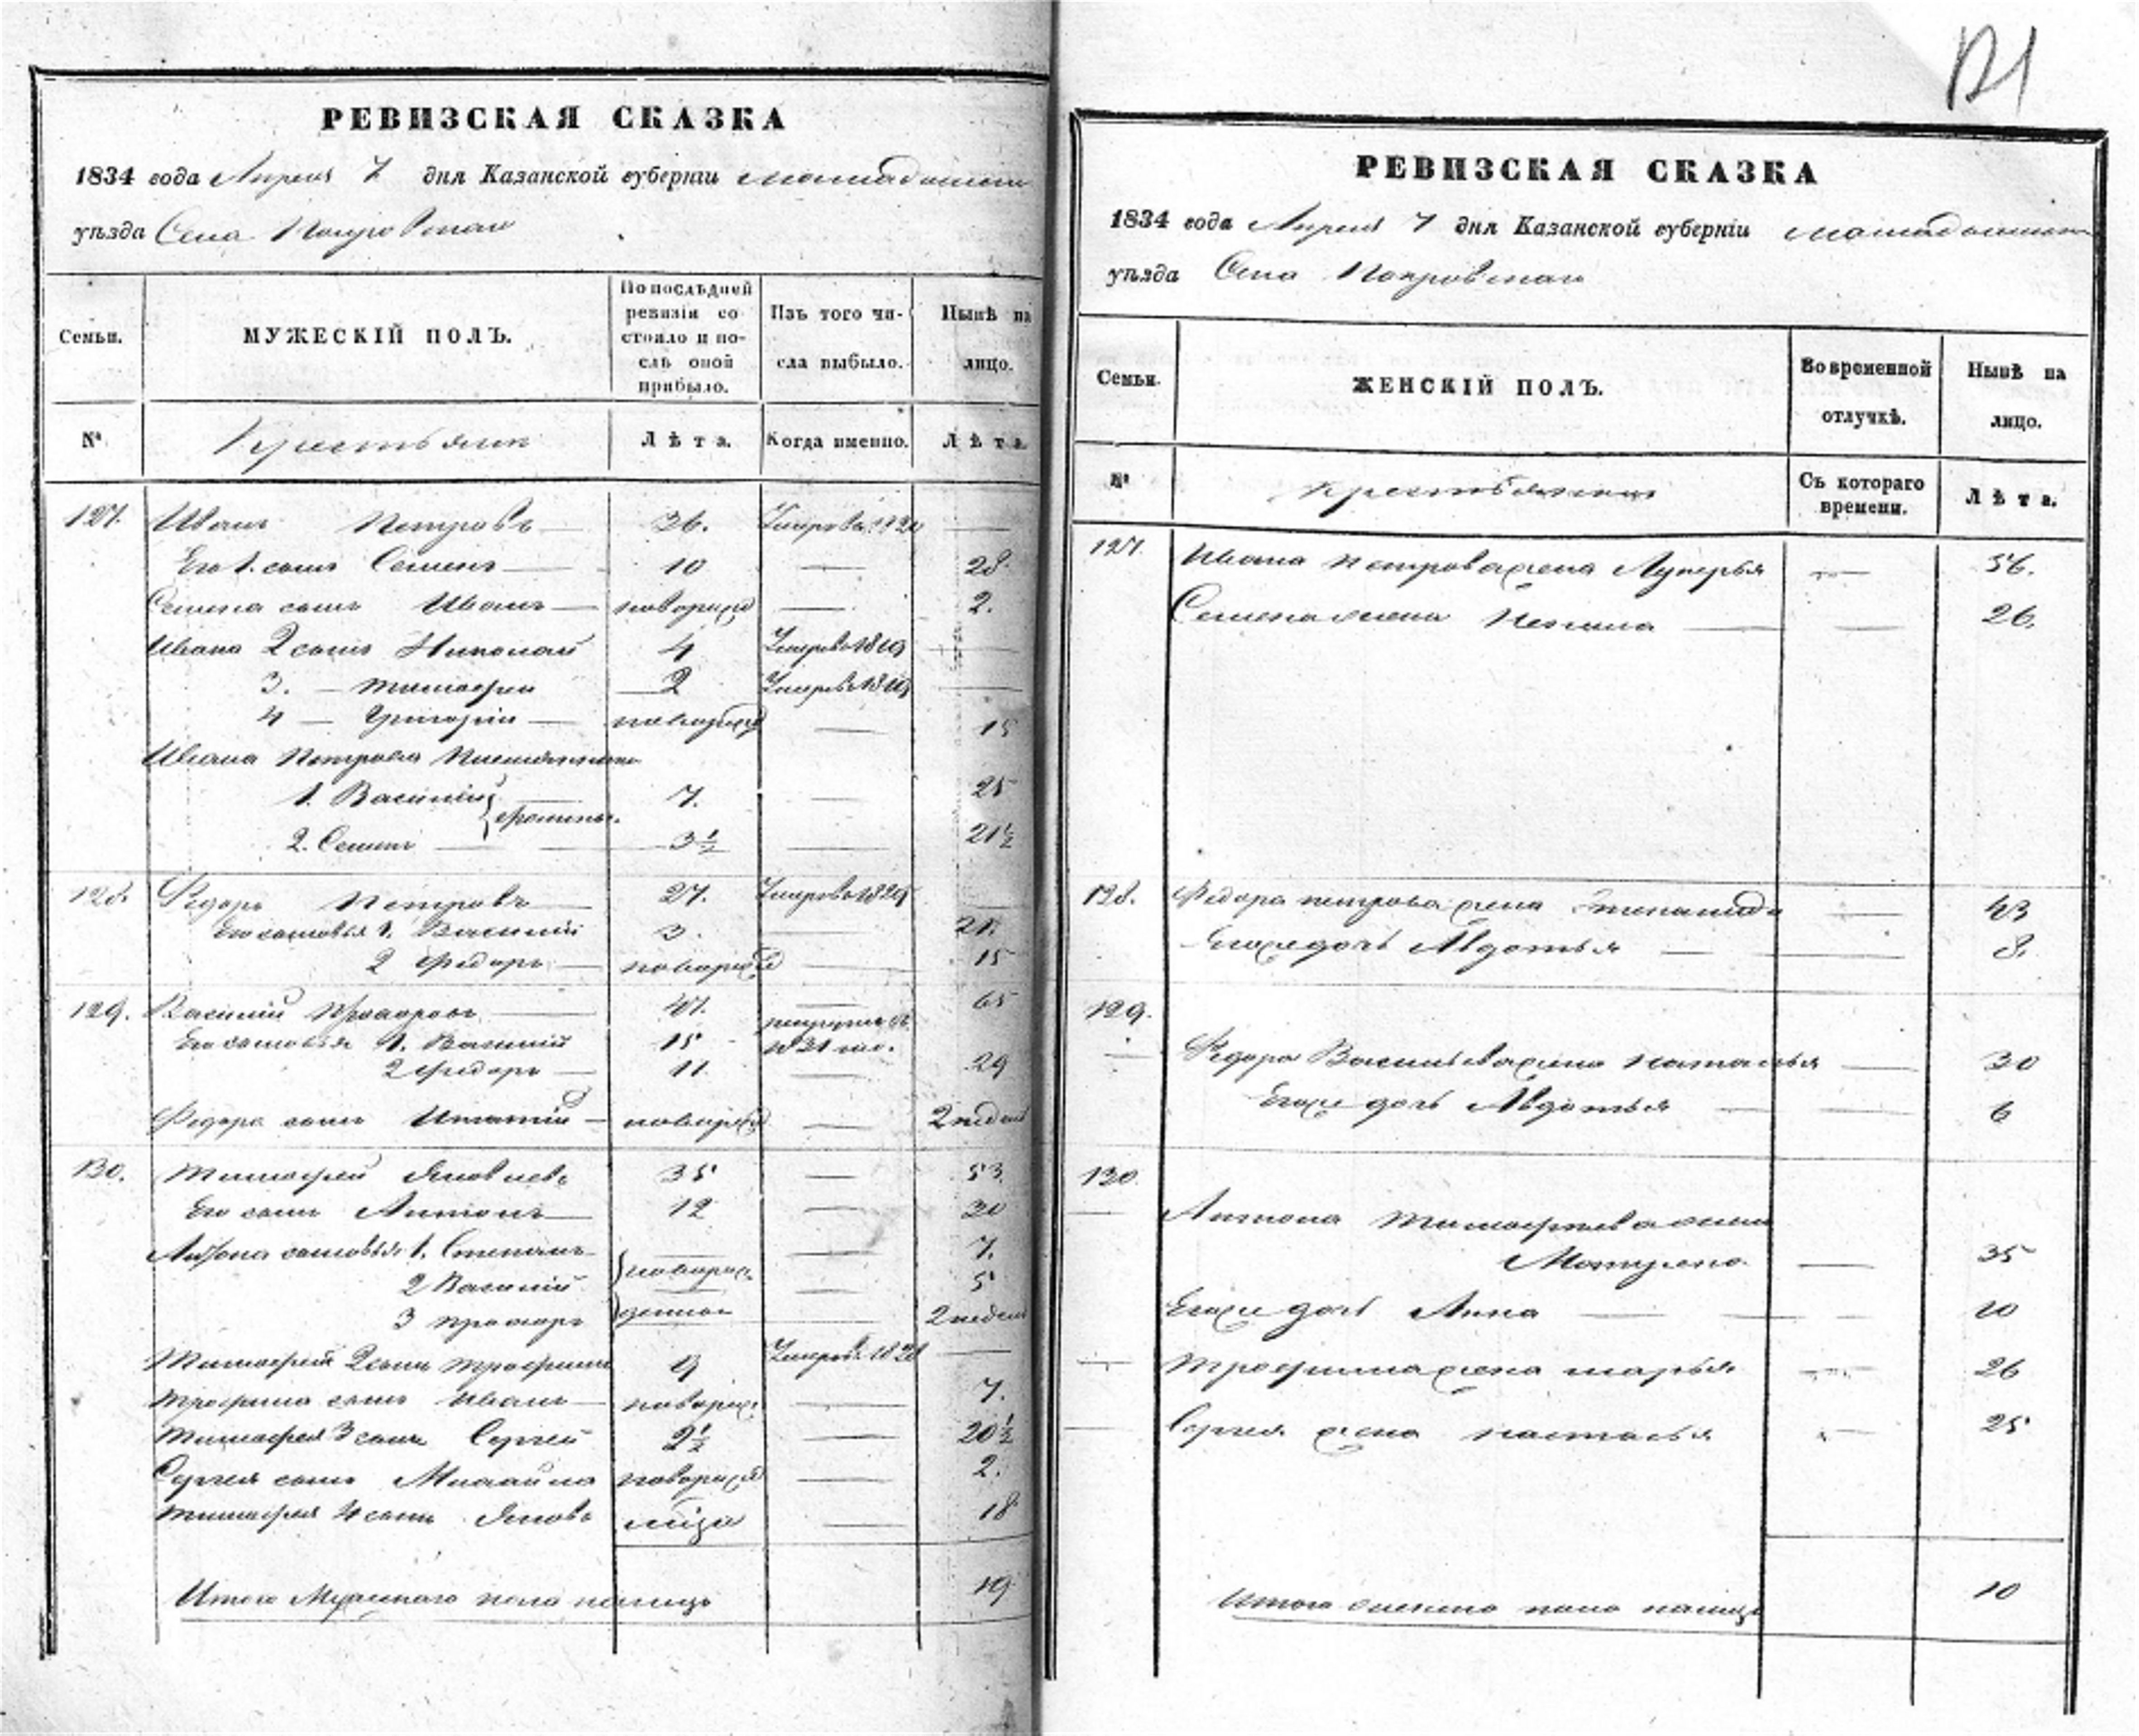 121
РЕВИЗСКАЯ СКАЗКА
1834 года Апреля 7 дня Казанской губерніи Мамадышскаго
уѣзда Села Покровскаго
Семьи.
МУЖЕСКІЙ ПОЛЪ.
По послѣдней ревизіи состояло и послѣ оной прибыло.
Изъ того числа выбыло.
Нынѣ на лицо.
№
Крестьяне
Лѣта.
Когда именно.
Лѣта
127. Иванъ Петровъ — 36. Умеръ въ —
Его 1. сынъ Семенъ — 10 — 28.
Семена сынъ Иванъ — новорожд — 2.
Ивана 2 сынъ Николай 4 Умеръ въ 1819 —
3. — Тимофей 2 Умеръ въ —
4 — Григорій — новорожд — 15
Ивана Петрова племянники
1. Василий — 7. — 25
Фомины
2. Семенъ — 3½ — 21½
128. Федоръ Петровъ 27. Умеръ въ —
Его сыновья 1. Василий 3. — 21.
2 Федоръ — новорожд — 15
129. Василий — 47. — 65
Его сыновья 1. Василий 15 -
2 Федоръ — 11 — 29
Федора сынъ Игнатій — новорожд — 2 недель
130. Тимофей Яковлевъ 35 — 53
Его сынъ Антонъ — 12 — 30
Антона сыновья 1. Степанъ — — 7.
2 Василий новорож — 5
3 Прохоръ денные 2 недели
Тимофея 2 сынъ Трофимъ 9 Умеръ въ —
Трофима сынъ Иванъ — новорож — 7.
Тимофея 3 сынъ Сергей 2½ — 20½
Сергея сынъ Михайла новорожд — 2.
Тимофея 4 сынъ Яковъ — 18
Итого Мужескаго пола налицо 19
РЕВИЗСКАЯ СКАЗКА
1834 года Апреля 7 дня Казанской губерніи Мамадышскаго
уѣзда Села Покровскаго
Семьи.
ЖЕНСКІЙ ПОЛЪ.
Во временной отлучкѣ.
Нынѣ на лицо.
№
Крестьянска
Съ котораго времени.
Лѣта.
127. Ивана Петрова жена Лукерья — 56.
Семена жена — — 26.
128. Федора Петрова жена — 43
Ея же дочь Авдотья — — 8.
129.
— Федора Васильева жена Наталья — 30
Ея же дочь Авдотья — — 6
130.
— Антона Тимофеева жена
Матрена — 35
Ея же дочь Анна — — 10
— Трофима жена Марья — 26
— Сергея жена Настасья — 25
Итого женска пола налицо 10